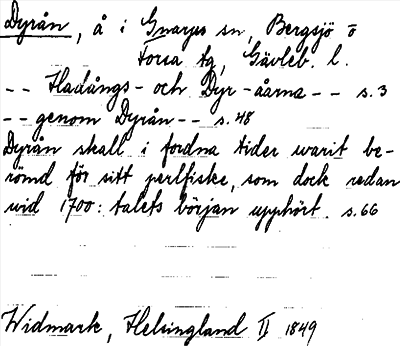 Dyrån, å i Gnarps sn, Bergsjö o
Forsa tg, Gävleb. l.
-- Hadångs- och Dyr-åarna -- s. 3
-- genom Dyrån -- s. 48
Dyrån skall i fordna tider warit be-
römd för sitt perlfiske, som dock redan
wid 1700: talets början upphört. s. 66
Widmark, Helsingland II 1849